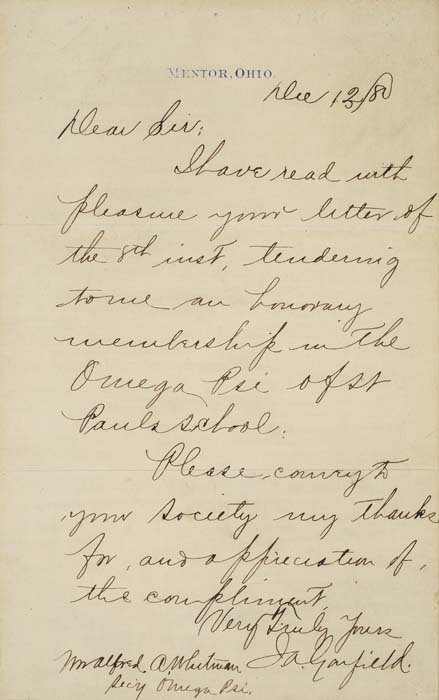 MENTOR, OHIO.
Dec 12/80
Dear Sir;
I have read with
pleasure your letter of
the 8th inst, tendering
to me an honorary
membership in the
Omega Psi of St
Pauls School.
Please, convey to
your society my thanks
for, and appreciation of,
the compliment.
Very Truly Yours
J.A. Garfield.
Mr Alfred. C. Whitman
Sec'y Omega Psi.